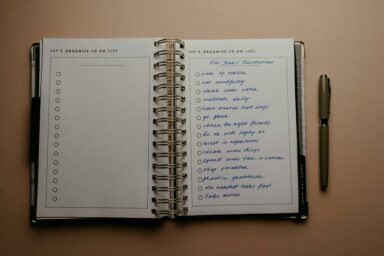 LET'S ORGANISE TO DO LIST
LET'S ORGANISE TO DO LIST
New Year's Resolutions
wake up earlier
eat mindfully
drink more water
meditate daily
have phone-free days
go green
choose the right friends
be ok with saying no
invest in experiences
create more things
spend more time in nature
shop smarter
practice gratitude
do hardest tasks first
take action